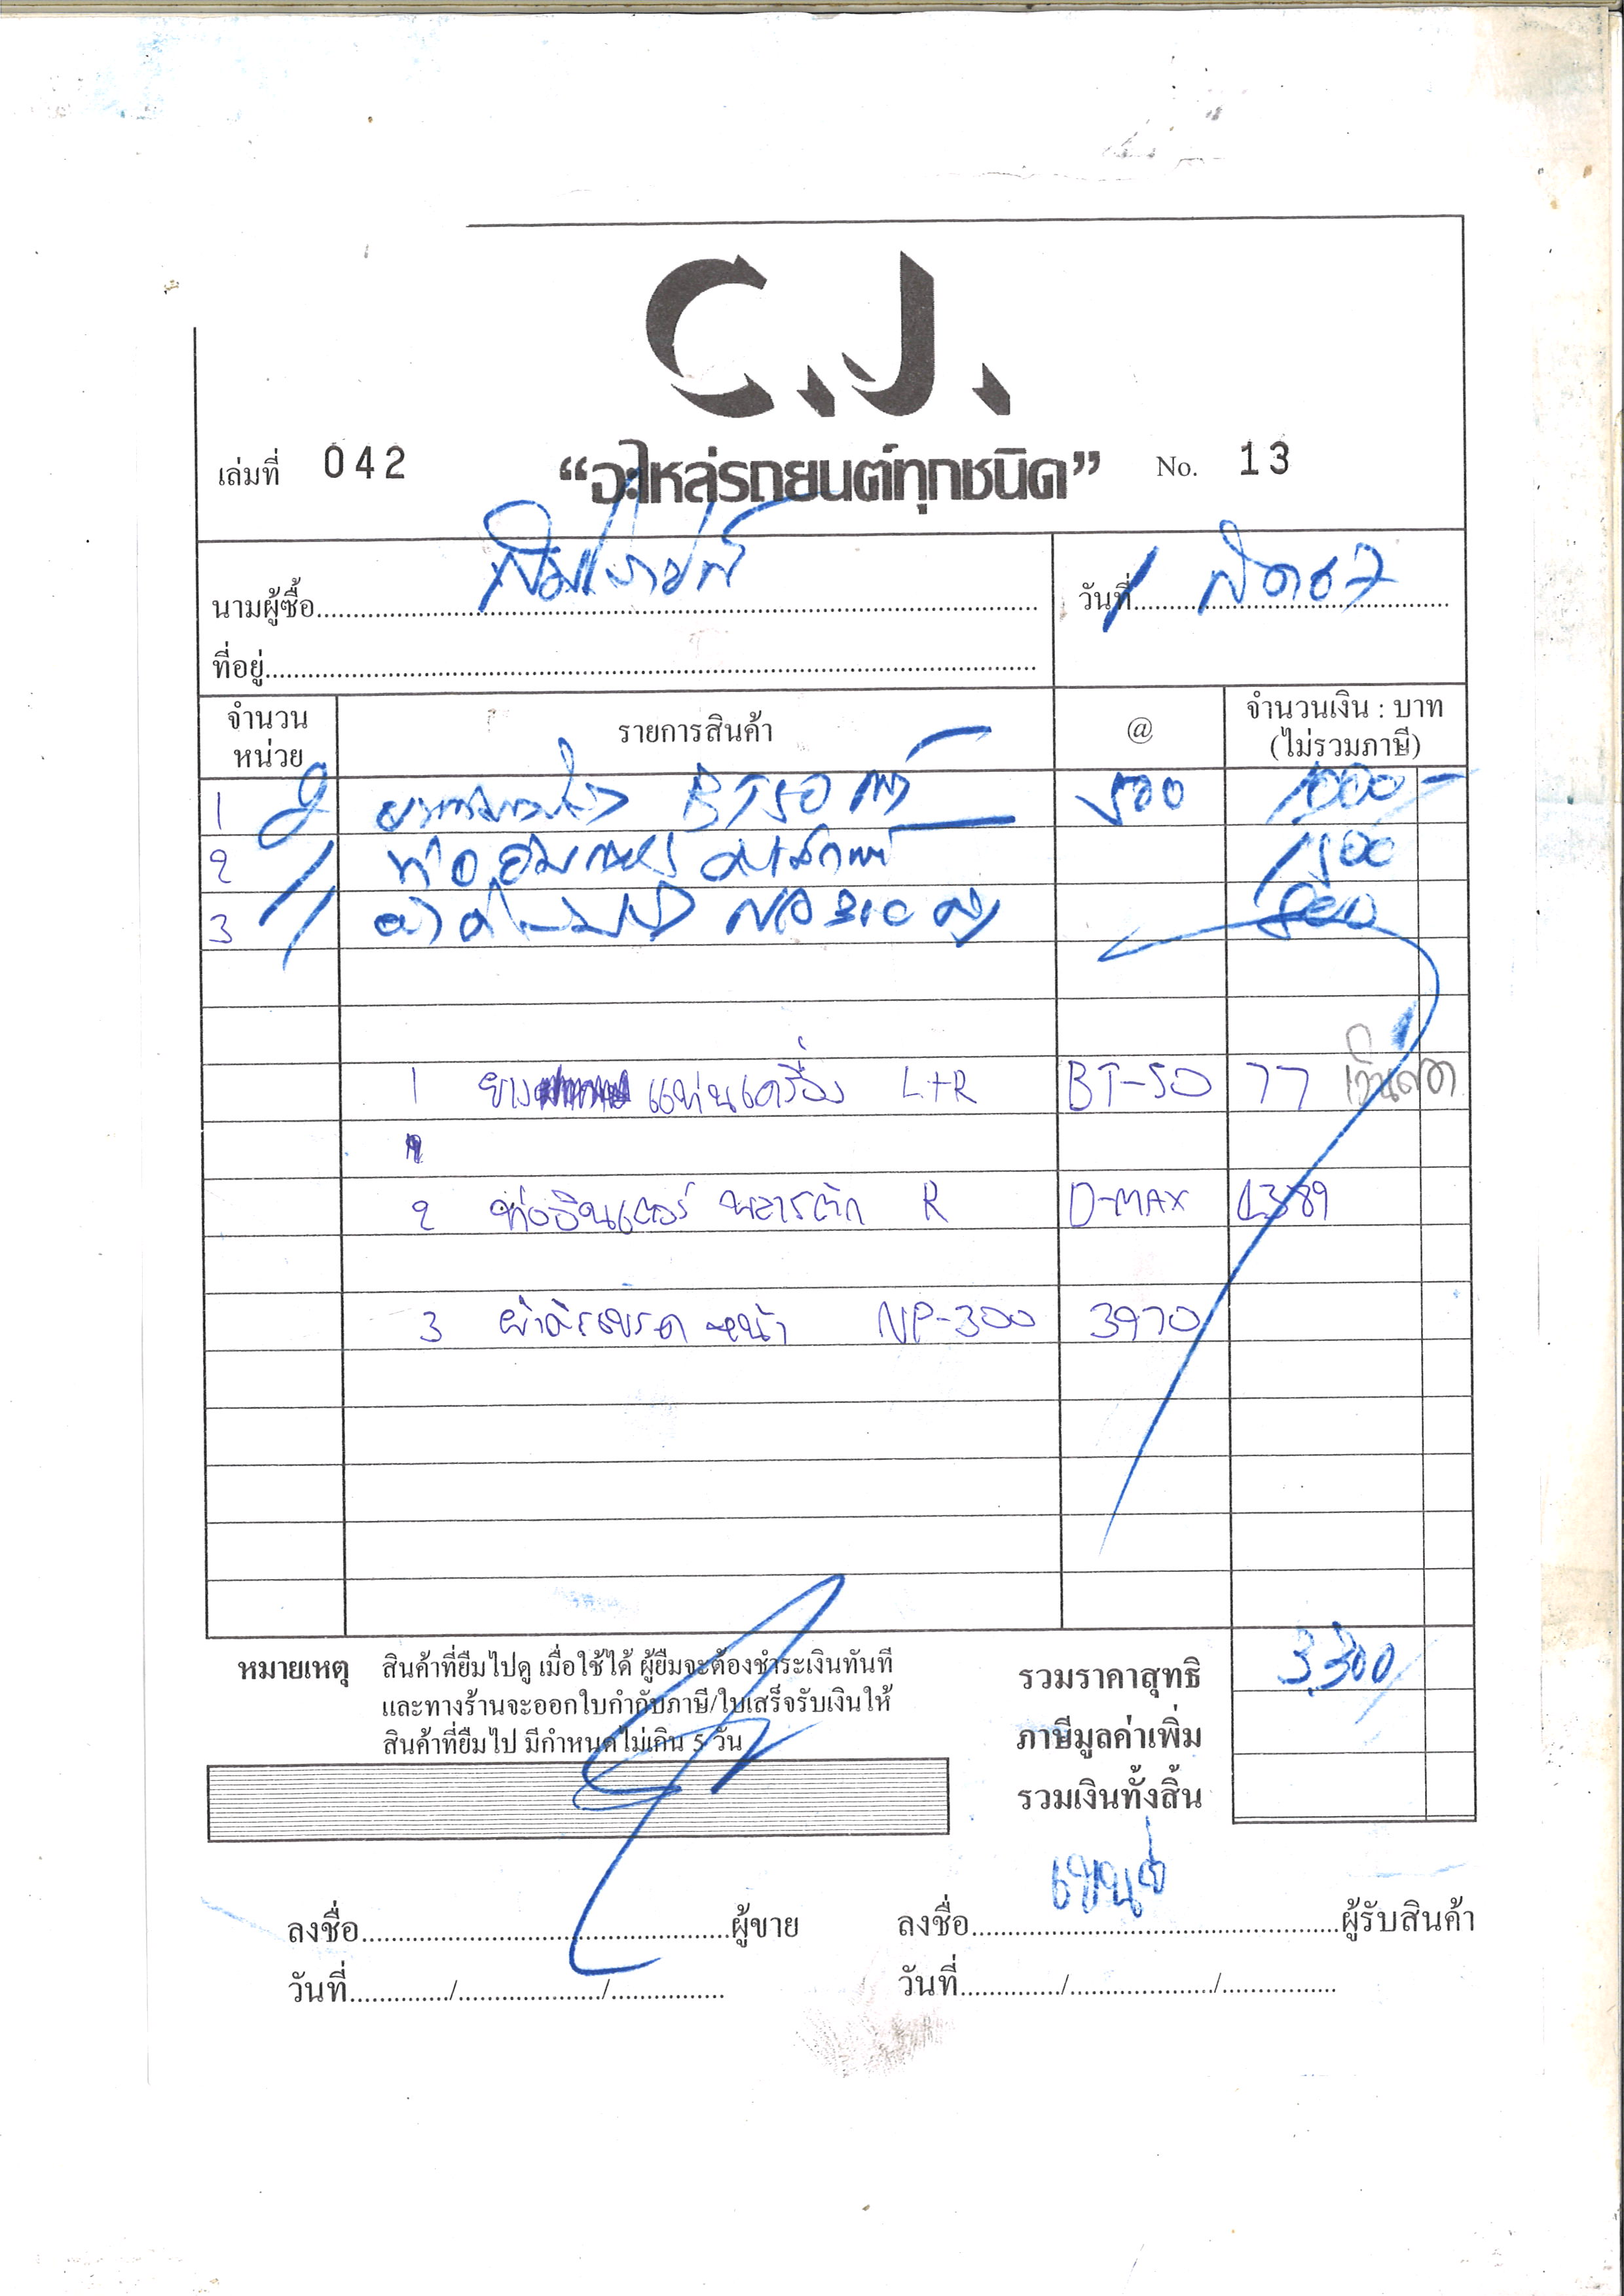 C.J.
เล่มที่ 042 “อะไหล่รถยนต์ทุกชนิด” No. 13
นามผู้ซื้อ วันที่ 1
ที่อยู่
จำนวนหน่วย รายการสินค้า @ จำนวนเงิน : บาท (ไม่รวมภาษี)
1 2 BT50 500 1000-
2 1 1800
3 1 500
1 ยางแท่นเครื่อง L+R BT-50 77 เงินสด
2 ท่ออินเตอร์ พลาสติก R D-MAX 1389
3 ผ้าดิสเบรค หน้า NP-300 3970
หมายเหตุ สินค้าที่ยืมไปดู เมื่อใช้ได้ ผู้ยืมจะต้องชำระเงินทันที
และทางร้านจะออกใบกำกับภาษี/ใบเสร็จรับเงินให้
สินค้าที่ยืมไป มีกำหนดไม่เกิน 5 วัน
รวมราคาสุทธิ 3,300
ภาษีมูลค่าเพิ่ม
รวมเงินทั้งสิ้น
ลงชื่อ ผู้ขาย ลงชื่อ ผู้รับสินค้า
วันที่ / / วันที่ / /